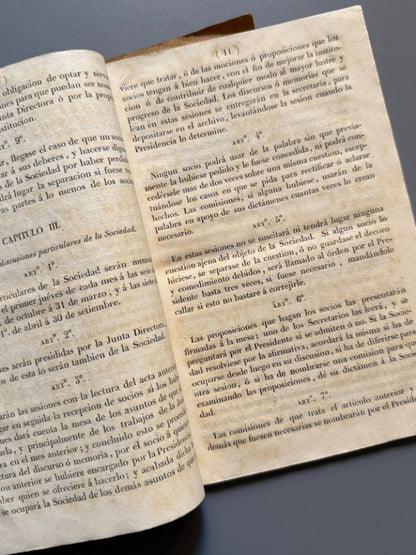 obligacion de optar y
para que puedan ser nom
Directora ó por la propia
institucion.
ART°. 9°.
, llegase el caso de que un
á sus deberes, y hacerse
de la Sociedad por haber
lugar la separacion si fuese
partes á lo menos de los
CAPITULO III.
discusiones particulares de la Sociedad.
ART°. 1°.
particulares de la Sociedad serán
el primer jueves de cada mes á las
de octubre á 31 de marzo, y á las siete
1°. de abril á 30 de setiembre.
ART°. 2°.
serán presididas por la Junta Director
de esta lo serán tambien de la Sociedad.
ART°. 3°.
las sesiones con la lectura del acta anter
en seguida la recepcion de socios si los
dará cuenta de la mesa de los asuntos de que
y principalmente de los trabajos de la
en el mes anterior; y concluido esto se pro
lectura del discurso ó memoria, por el socio á quien
anterior se hubiere encargado por la Presiden
haber quien se ofreciere á hacerlo; y acabada dicha
se ocupará la Sociedad de los demás asuntos de que
( 11 )
viere que tratar, ó de las mociones ó proposiciones que los
socios tengan á bien hacer, con el fin de mejorar la institu-
cion ó de contribuir de cualquier modo al mayor lustre y
progreso de la Sociedad. Los discursos ó memorias que se
lean en estas sesiones se entregarán en la secretaría, para
depositarse en el archivo, levantándose la sesion cuando la
Presidencia lo determine.
ART°. 4°.
Ningun socio podrá usar de la palabra sin que previa-
mente la hubiese pedido y le fuese concedida, ni podrá con-
cedérsele mas de dos veces sobre una misma cuestion, excep-
tuándose los casos en que se pida para rectificar ó aclarar
hechos. Las comisiones, si alguna hubiese, usarán de la
palabra en apoyo de sus dictámenes cuantas veces lo crean
necesario.
ART°. 5°.
En estas sesiones no se suscitará ni tendrá lugar ninguna
cuestion ajena del objeto de la Sociedad. Si algun socio lo
hiciese, se separase de la cuestion, ó no guardase el decoro
y comedimiento debidos, será llamado al órden por el Pre-
sidente hasta tres veces, si fuese necesario, mandándole
callar si esto no bastare á corregirle.
ART°. 6°.
Las proposiciones que hagan los socios las presentarán
firmadas á la mesa; uno de los Secretarios las leerá, y se
preguntará por el Presidente si se admiten ó no. Si la Socie-
dad resolviese por la afirmativa, acordará la misma si ha de
ocuparse desde luego en su discusion, si ha de diferirse para
otra sesion, ó si ha de nombrarse una comision para que
examinando las proposiciones, dé su dictámen á la Socie-
dad.
ART°. 7°.
Las comisiones de que trata el articulo anterior y
demás que fuesen necesarias se nombrarán por el Presiden